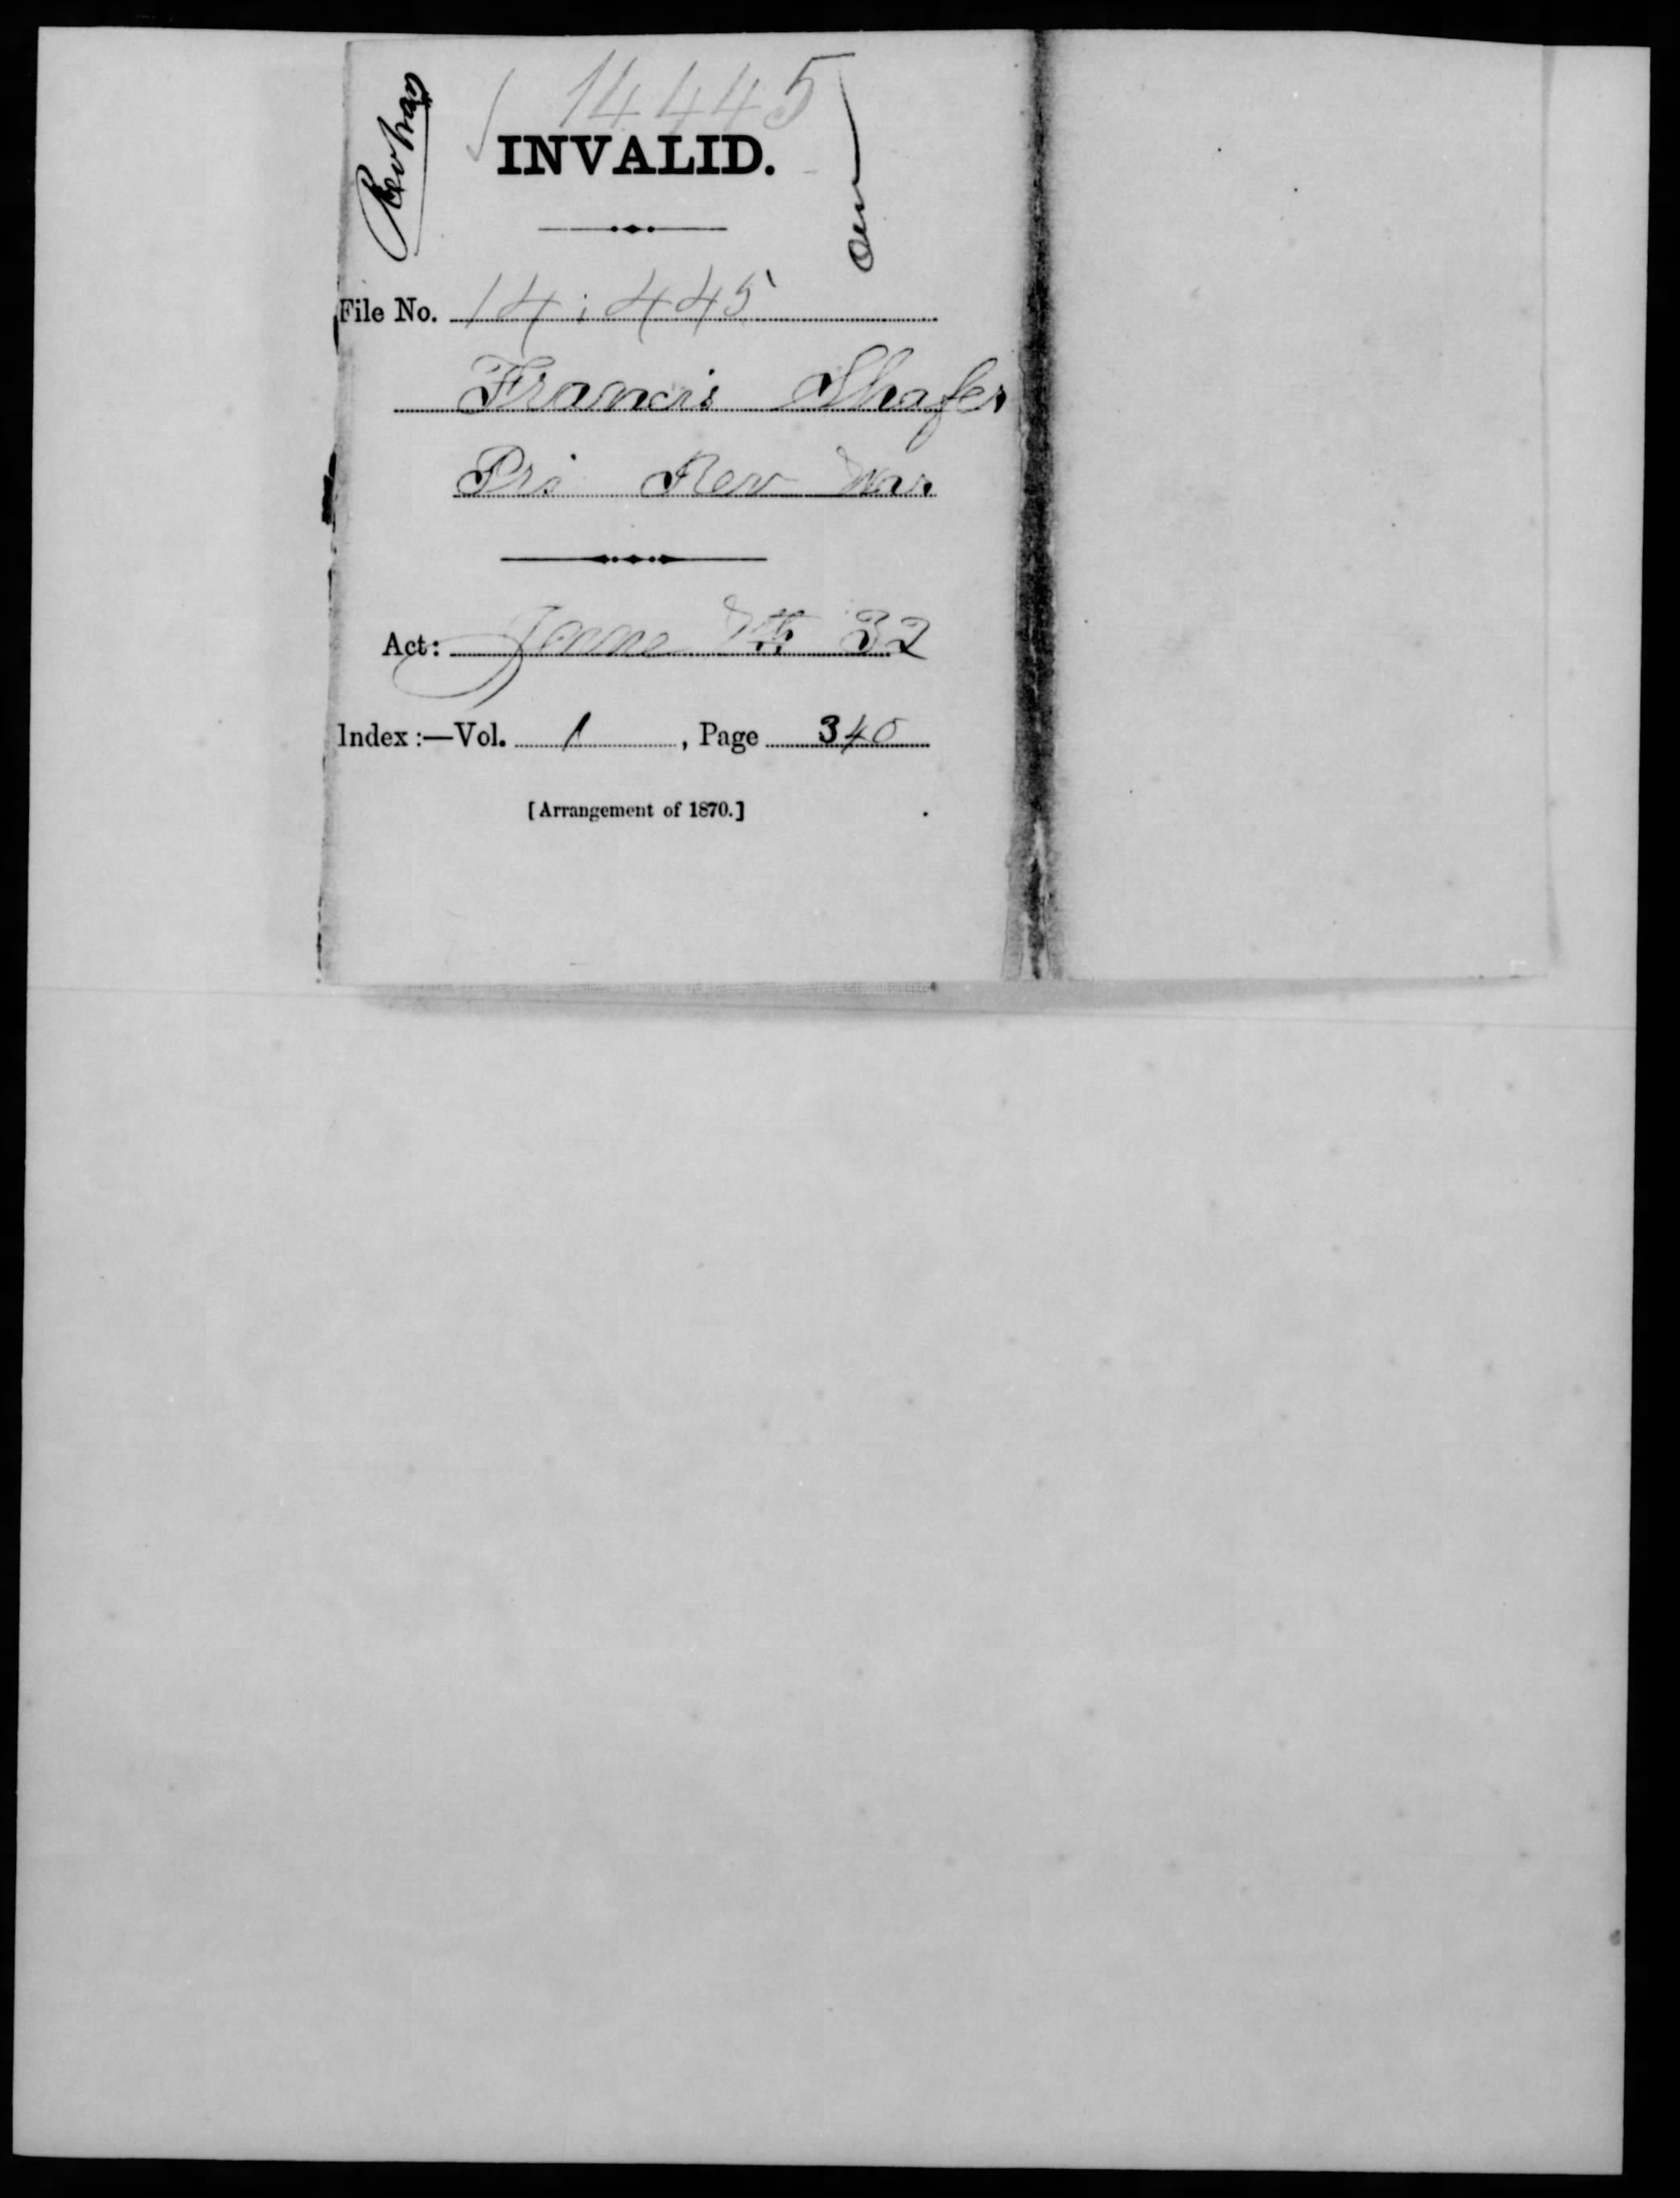 14445
INVALID.
File No. 14,445
Francis Shafer
Pri Rev War
Act: June 7th 32
Index:—Vol. 1, Page 340
[Arrangement of 1870.]